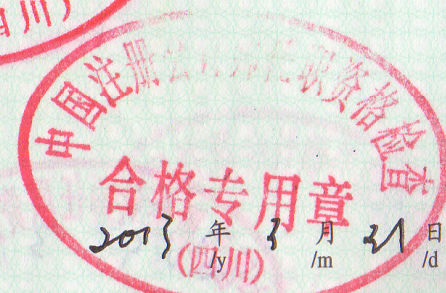 中国注册会计师任职资格检查
合格专用章
2013 年 3 月 31 日
/y /m /d
(四川)